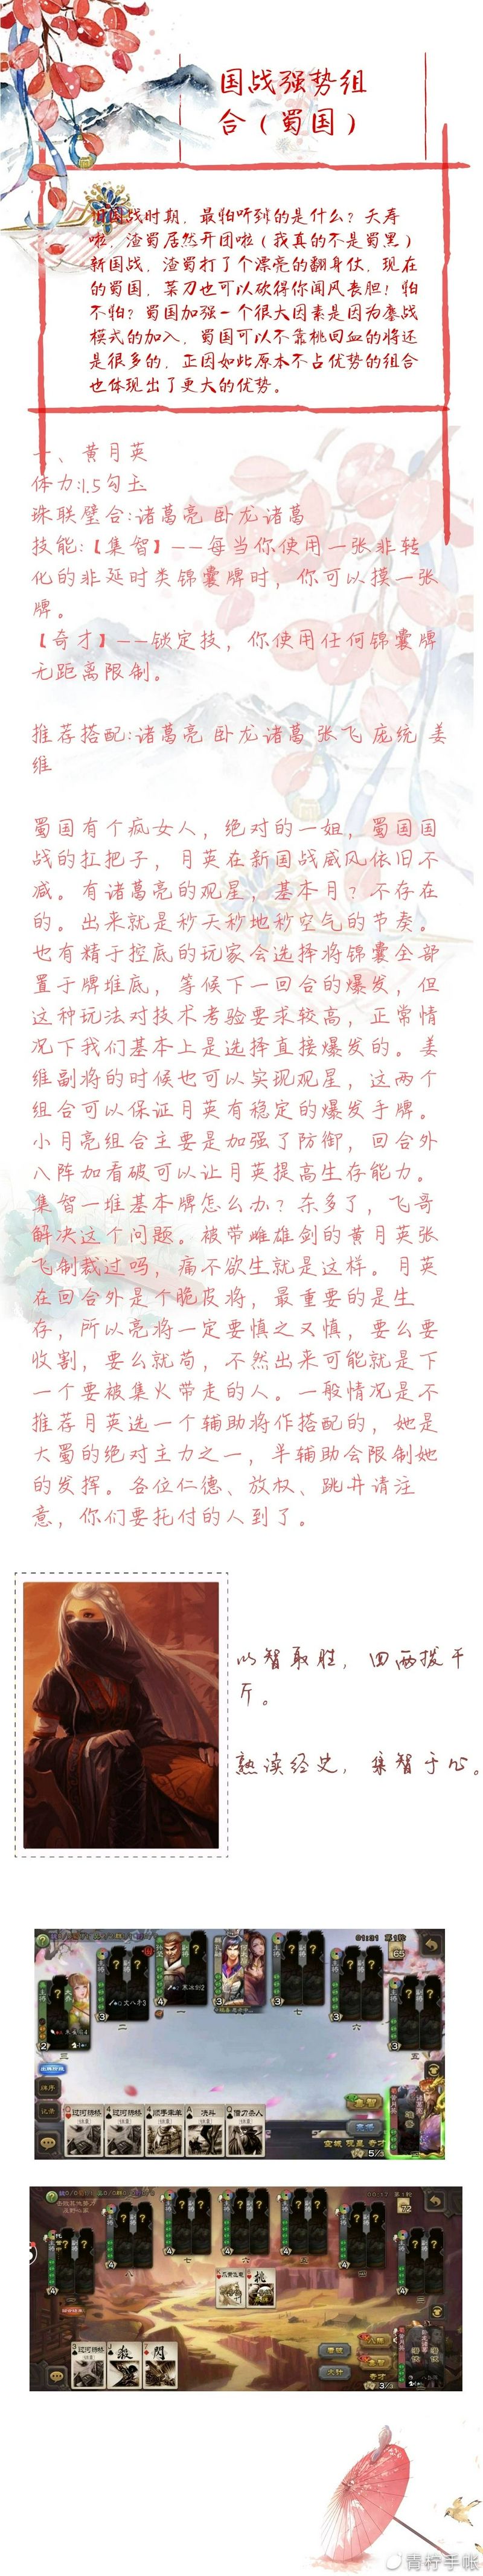 国战强势组
合（蜀国）
旧国战时期，最怕听到的是什么？天寿
啦，渣蜀居然开团啦（我真的不是蜀黑）
新国战，渣蜀打了个漂亮的翻身仗，现在
的蜀国，菜刀也可以砍得你闻风丧胆！怕
不怕？蜀国加强一个很大因素是因为鏖战
模式的加入，蜀国可以不靠桃回血的将还
是很多的，正因如此原本不占优势的组合
也体现出了更大的优势。
一、黄月英
体力:1.5勾玉
珠联璧合:诸葛亮 卧龙诸葛
技能:【集智】——每当你使用一张非转
化的非延时类锦囊牌时，你可以摸一张
牌。
【奇才】——锁定技，你使用任何锦囊牌
无距离限制。
推荐搭配:诸葛亮 卧龙诸葛 张飞 庞统 姜
维
蜀国有个疯女人，绝对的一姐，蜀国国
战的扛把子，月英在新国战威风依旧不
减。有诸葛亮的观星，基本月？不存在
的。出来就是秒天秒地秒空气的节奏。
也有精于控底的玩家会选择将锦囊全部
置于牌堆底，等候下一回合的爆发，但
这种玩法对技术考验要求较高，正常情
况下我们基本上是选择直接爆发的。姜
维副将的时候也可以实现观星，这两个
组合可以保证月英有稳定的爆发手牌。
小月亮组合主要是加强了防御，回合外
八阵加看破可以让月英提高生存能力。
集智一堆基本牌怎么办？杀多了，飞哥
解决这个问题。被带雌雄剑的黄月英张
飞制裁过吗，痛不欲生就是这样。月英
在回合外是个脆皮将，最重要的是生
存，所以亮将一定要慎之又慎，要么要
收割，要么就苟，不然出来可能就是下
一个要被集火带走的人。一般情况是不
推荐月英选一个辅助将作搭配的，她是
大蜀的绝对主力之一，半辅助会限制她
的发挥。各位仁德、放权、跳井请注
意，你们要托付的人到了。
以智取胜，四两拨千
斤。
熟读经史，集智于心。
01:31 第1轮
65
过河拆桥
过河拆桥
顺手牵羊
决斗
借刀杀人
集智
空城 观星 奇才
5/3
第1轮
72
桃
过河拆桥
殺
閃
集智
奇才
3/3
青柠手帐